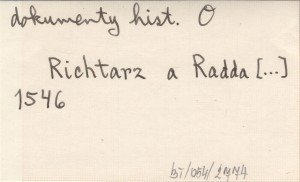 dokumenty hist. O
Richtarz a Radda [...]
1546
bT/054/2774